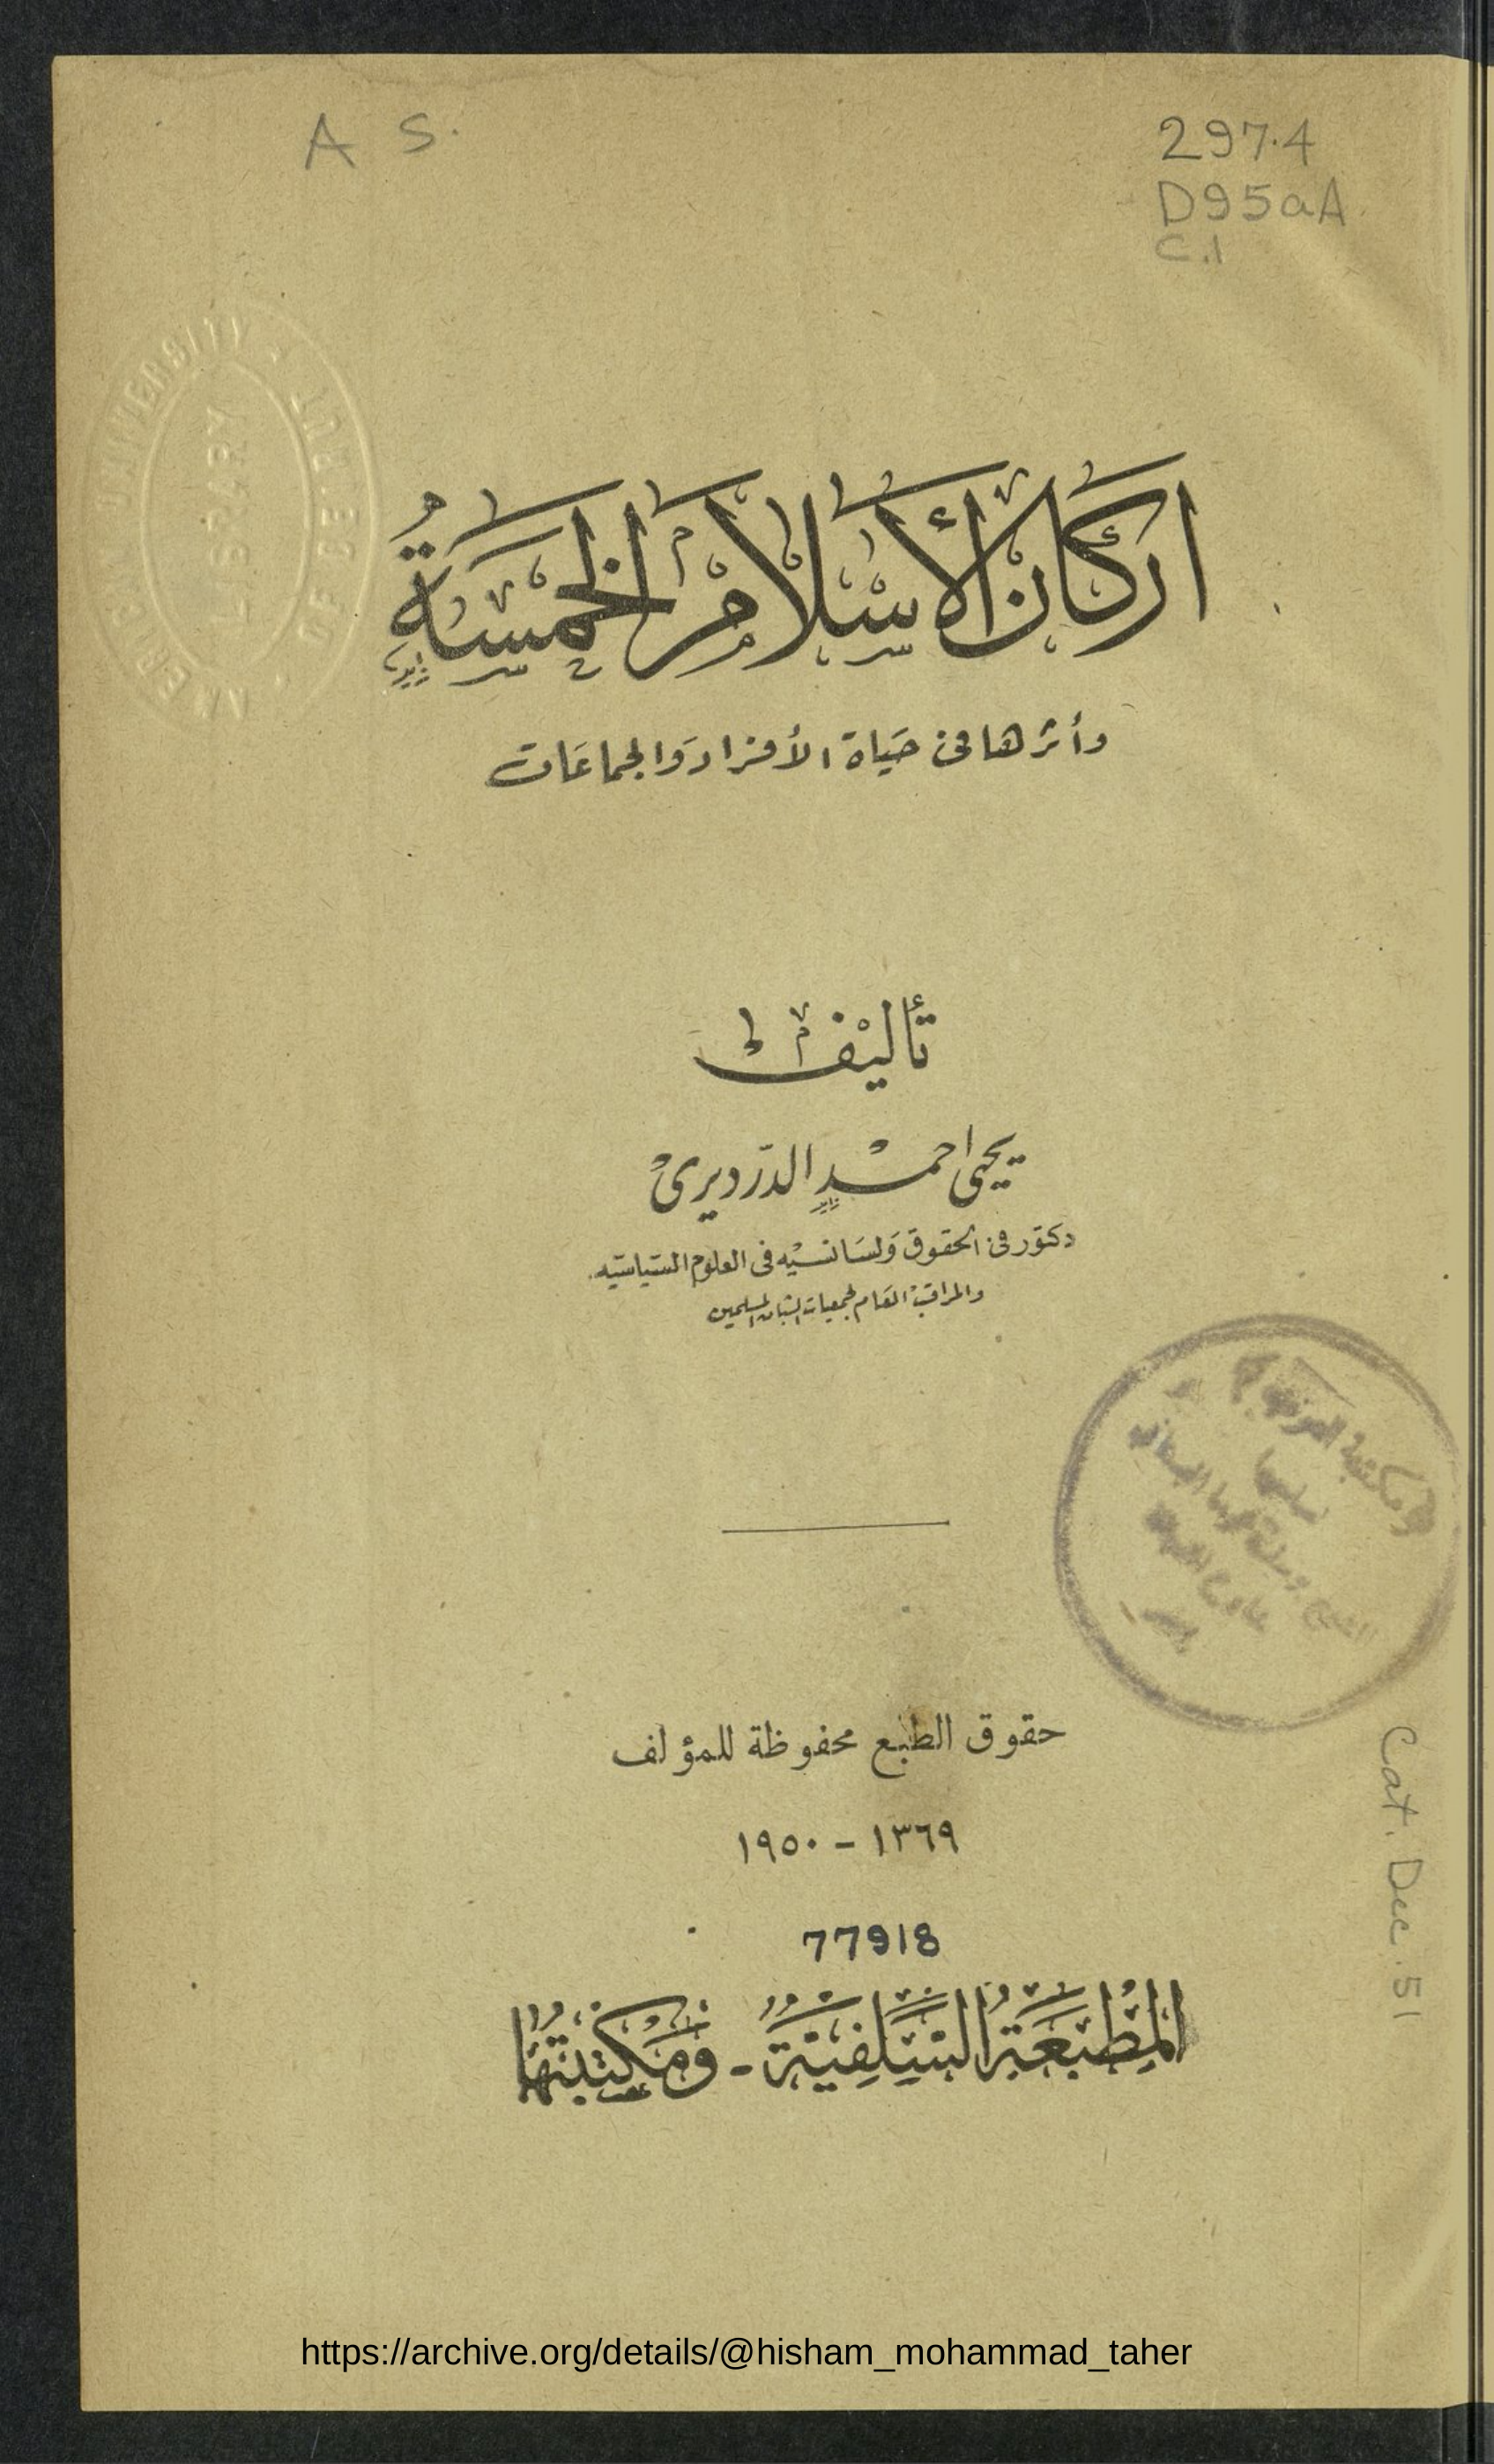 A S.
297.4
D95aA
C.1
AMERICAN UNIVERSITY OF BEIRUT
LIBRARY
اركان الأسلام الخمسة
وأثرها فى حياة الأفراد والجماعات
تأليف
يحيى احمد الدرديرى
دكتور فى الحقوق وليسانسيه فى العلوم السياسيه
والمراقب العام لجمعيات الشبان المسلمين
حقوق الطبع محفوظة للمؤلف
١٣٦٩ - ١٩٥٠
77918
المطبعة السلفية - ومكتبتها
Cat. Dec. 51
https://archive.org/details/@hisham_mohammad_taher